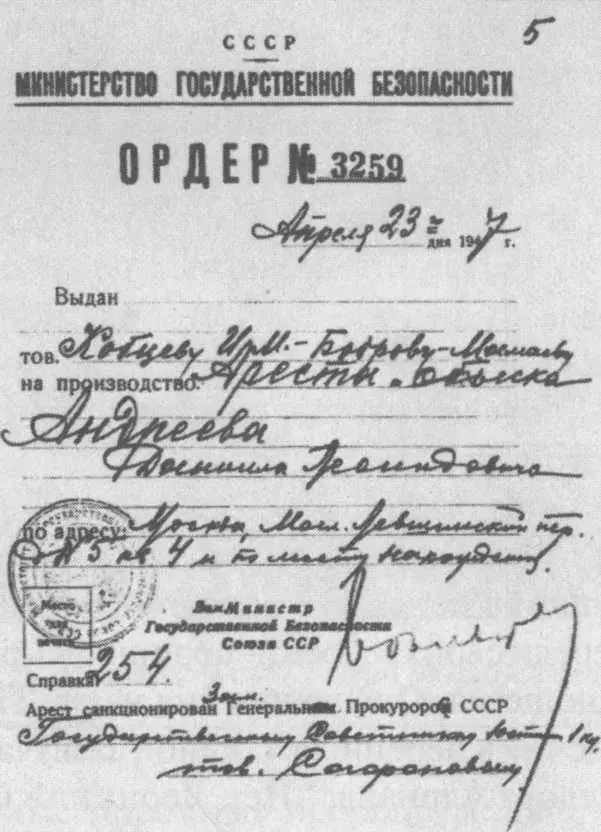 5
СССР
МИНИСТЕРСТВО ГОСУДАРСТВЕННОЙ БЕЗОПАСНОСТИ
ОРДЕР № 3259
Апреля 23 дня 1947 г.
Выдан
тов. Кобцеву
на производство: Аресты и обыска
Андреева
Даниила Леонидовича
по адресу: Москва, Мал. Левшинский пер.
д № 5 кв 4 и по месту нахождения.
Место
для
печати
Зам Министр
Государственной Безопасности
Союза ССР
Справка 254.
Зам.
Арест санкционирован Генеральным Прокурором СССР
Государственным Советником Юстиции 1 кл.
тов. Сафоновым